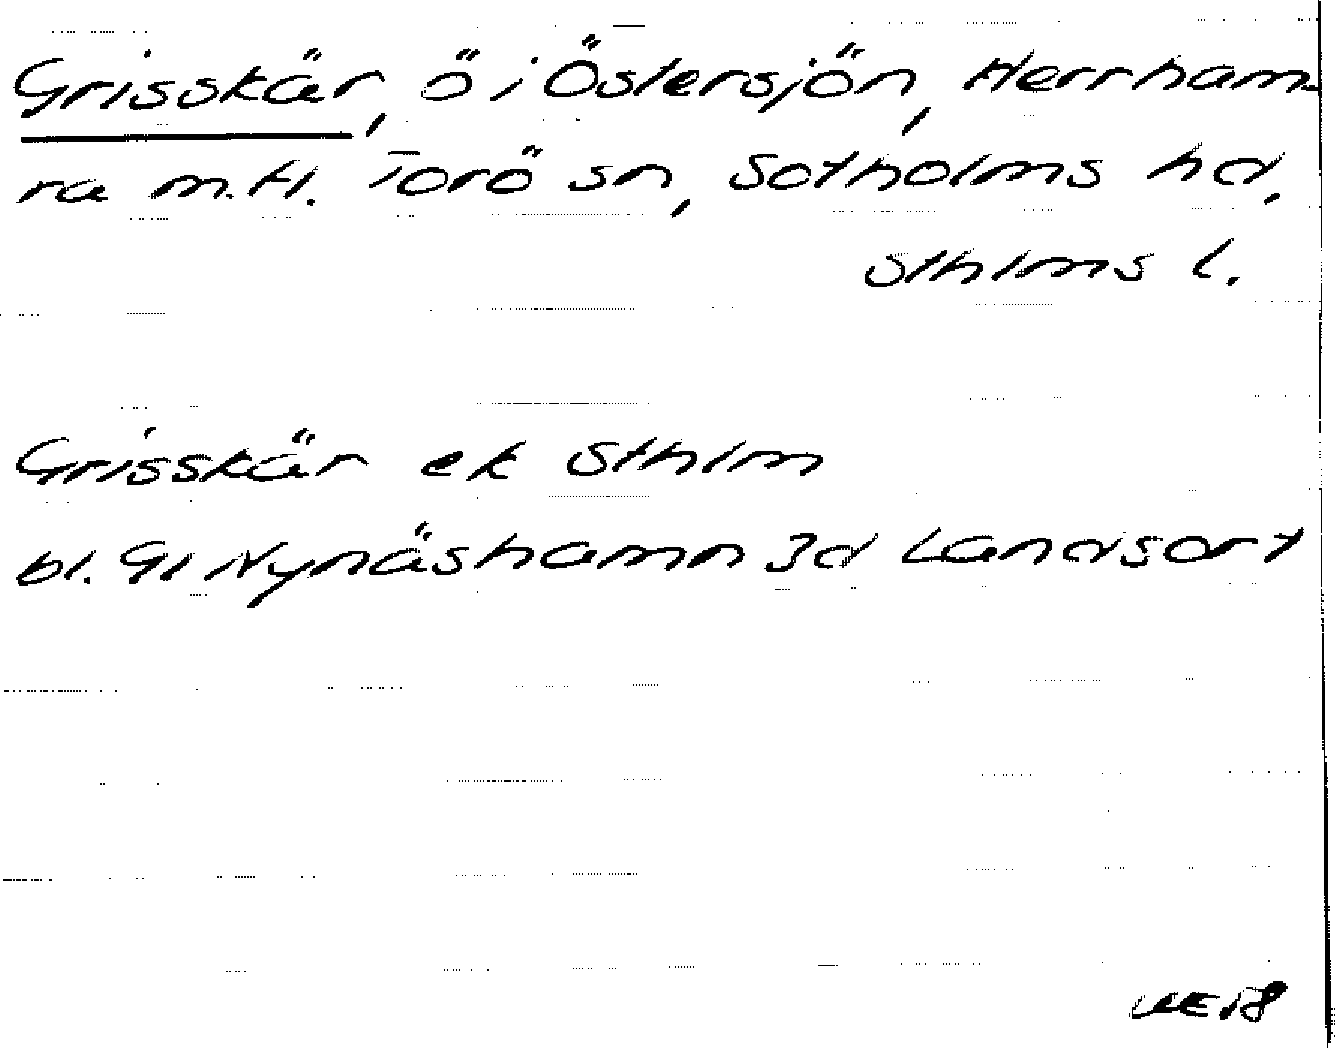 Grisskär, ö i Östersjön, Herrham-
ra m.fl. Torö sn, Sotholms hd,
Sthlms l.
Grisskär ek Sthlm
bl. 91 Nynäshamn 3d Landsort